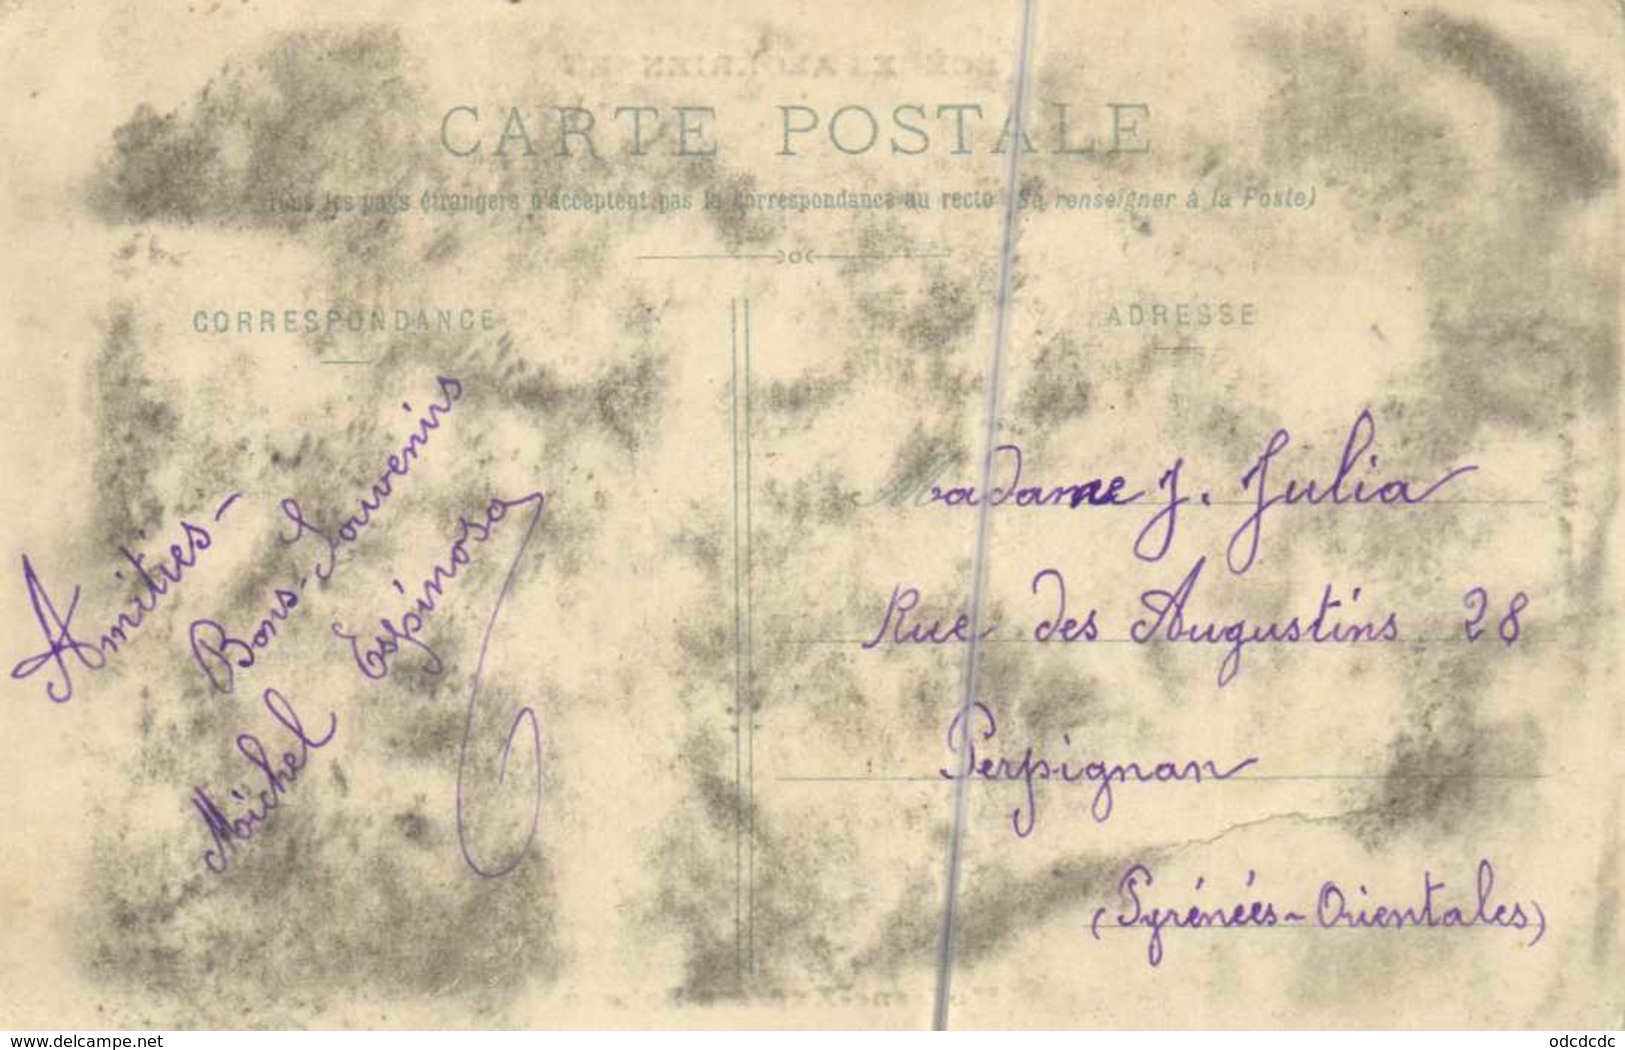 CARTE POSTALE
Tous les pays étrangers n'acceptent pas la correspondance au recto (Se renseigner à la Poste)
CORRESPONDANCE
Amitiés -
Bons-Souvenirs
Michel Espinosa
ADRESSE
Madame J. Julia
Rue des Augustins 28
Perpignan
(Pyrénées-Orientales)
www.delcampe.net
odcdcdc